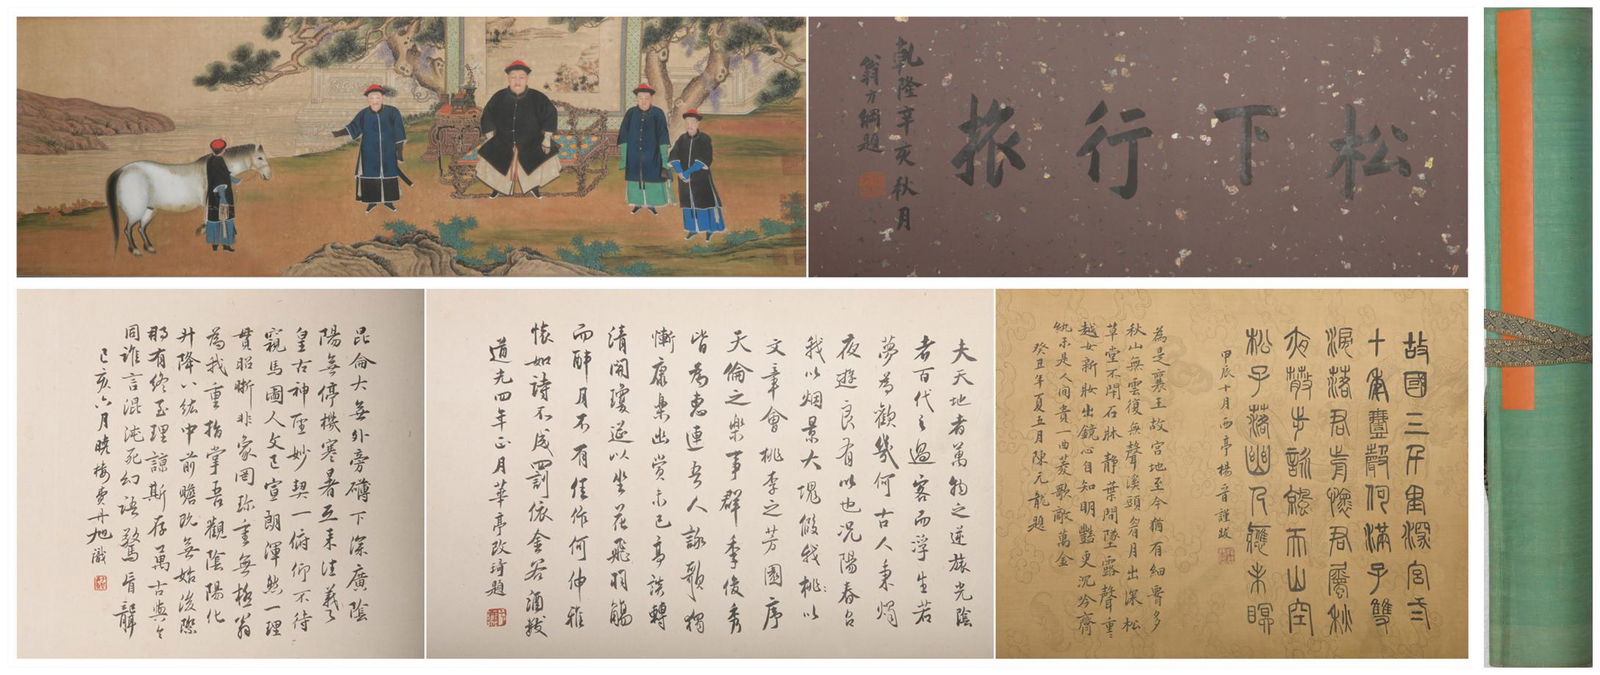 松下行旅
乾隆辛亥秋月
翁方綱題
故國三千里深宮二
十年一聲何滿子雙
淚落君前懷君屬秋
夜散步詠涼天山空
松子落幽人應未眠
甲辰十月西亭楊晉謹跋
為是襄王故宮地至今猶有細腰多
秋山無雲復無聲溪頭看月出深松
草堂不閉石牀靜葉間墜露聲重重
越女新妝出鏡心自知明豔更沉吟齊
紈未是人間貴一曲菱歌敵萬金
癸丑年夏五月陳元龍題
夫天地者萬物之逆旅光陰
者百代之過客而浮生若
夢為歡幾何古人秉燭
夜遊良有以也況陽春召
我以烟景大塊假我桃以
文章會桃李之芳園序
天倫之樂事群季俊秀
皆為惠連吾人詠歌獨
慚康樂出賞未已高談轉
清開瓊筵以坐花飛羽觴
而醉月不有佳作何伸雅
懷如詩不成罰依金谷酒數
道光四年正月華亭改琦題
昆侖大無外旁礴下深廣陰
陽無停機寒暑互來往羲
皇古神聖妙契一俯仰不待
窺馬圖人文已宣朗渾然一理
貫昭晰非象罔珍重無極翁
為我重指掌吾觀陰陽化
升降八紘中前瞻既無始後際
那有終至理諒斯存萬古與今
同誰言混沌死幻語驚盲聾
己亥六月曉樓費丹旭識